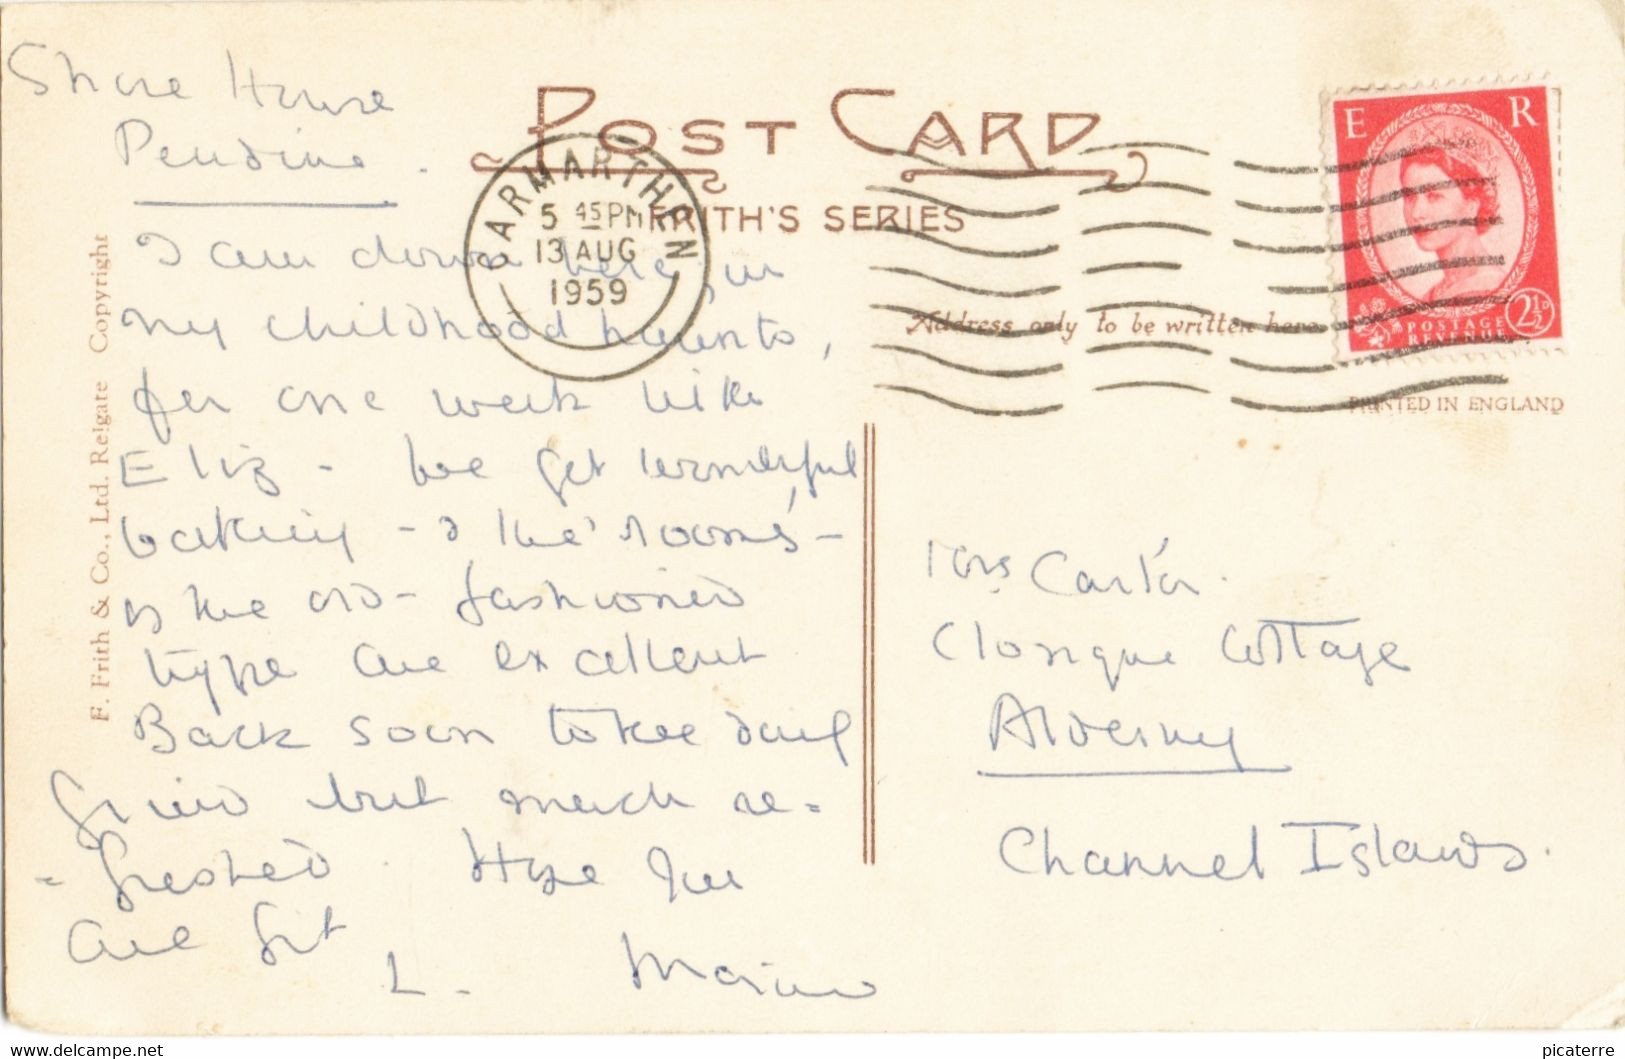 Shore House
Pendine.
POST CARD
FRITH'S SERIES
CARMARTHEN
5 45 PM
13 AUG
1959
E R
POSTAGE
REVENUE
2½D
Address only to be written here
PRINTED IN ENGLAND
F. Frith & Co., Ltd. Reigate Copyright
I am down here in
my childhood haunts,
for one week with
Eliz - we get wonderful
bathing - & the 'rooms' -
of the old-fashioned
type are excellent
Back soon to the daily
grind but much re=
=freshed. Hope you
are fit
L.
Mrs Carter.
Clonque Cottage
Alderney
Channel Islands.
www.delcampe.net
picaterre